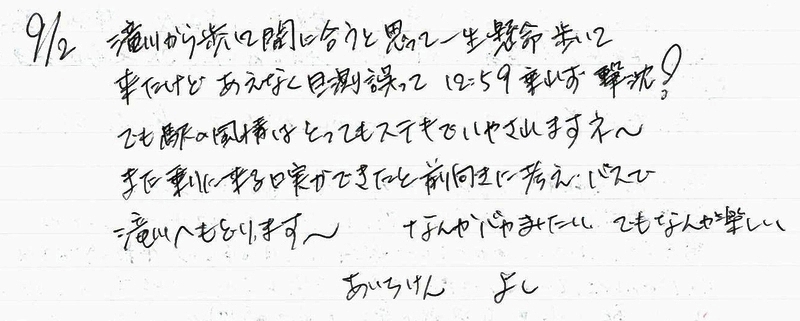 9/2 滝川から歩いて間に合うと思って一生懸命歩いて
来たけど あえなく目測誤って 12:59乗れず 撃沈!
でも駅の風情はとってもステキでいやされますネ〜
また乗りに来る口実ができたと前向きに考え、バスで
滝川へもどります〜 なんか みたい でもなんか楽しい
あいちけん よし